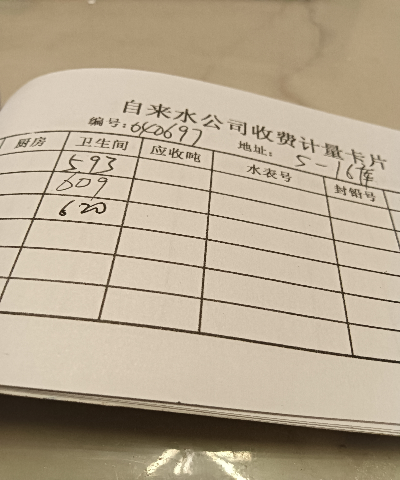 自来水公司收费计量卡片
编号:040697 地址: 5-16库
厨房 卫生间 应收吨 水表号 封铅号
593
609
620